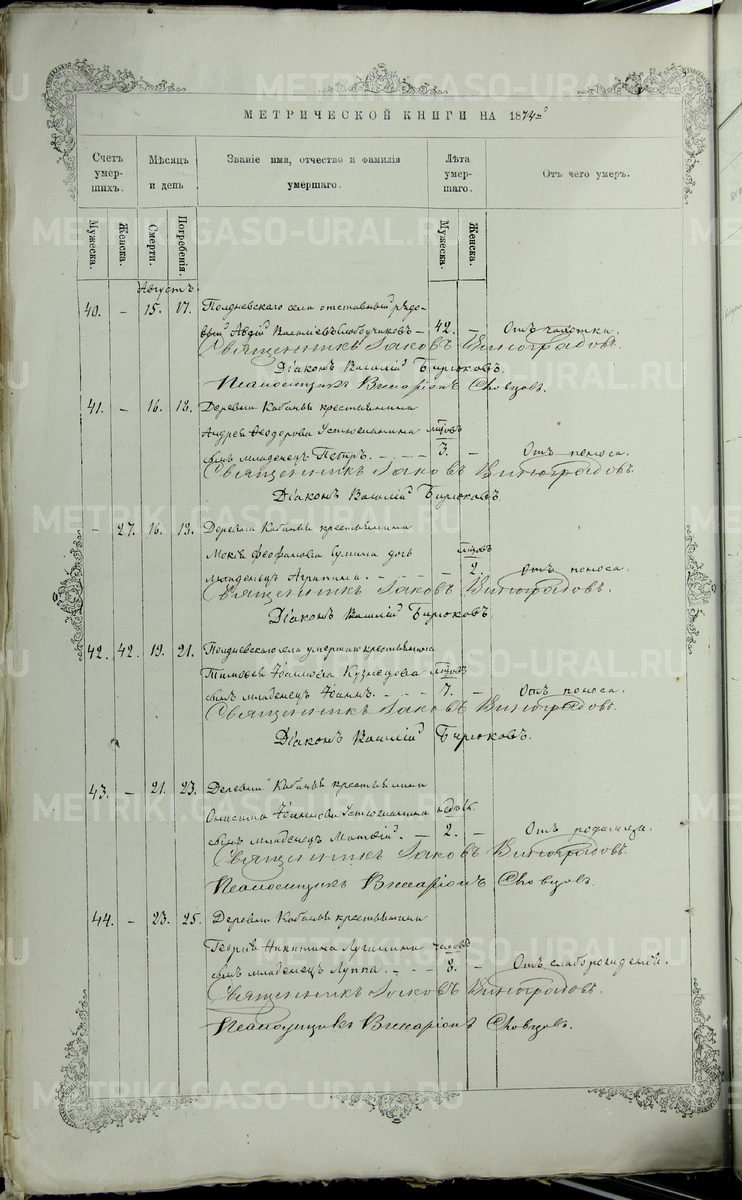 METRIKI.GASO-URAL.RU
МЕТРИЧЕСКОЙ КНИГИ НА 1874 г҃
Счетъ умер-шихъ. Мѣсяцъ и день Званіе имя, отчество и фамилія умершаго. Лѣта умер-шаго. Отъ чего умеръ.
Мужеска. Женска. Смерти. Погребенія. Мужеска. Женска.
Августъ
40. – 15. 17. Полдневскаго села отставный рядо-
вый Авдій – 42. – Отъ чахотки.
Священникъ Іаковъ Виноградовъ.
Діаконъ Василій Бирюковъ.
Псаломщикъ Виссаріонъ
41. – 16. 18. Деревни Кабаньи крестьянина
Андрея Ѳеодорова Устюгианина мѣсяцъ
сынъ младенецъ Петръ. – – – 3. – Отъ поноса.
Священникъ Іаковъ Виноградовъ.
Діаконъ Василій Бирюковъ.
– 27. 16. 18. Деревни Кабаньи крестьянина
Мокія Феофанова дочь
младенецъ Агрипина. – – – 2. – Отъ поноса.
Священникъ Іаковъ Виноградовъ.
Діаконъ Василій Бирюковъ.
42. 42. 19. 21. Полдневскаго села умершаго крестьянина
Тимофея Іоаннова Кузнецова
сынъ младенецъ Іоаннъ. – – – 7. – Отъ поноса.
Священникъ Іаковъ Виноградовъ.
Діаконъ Василій Бирюковъ.
43. – 21. 23. Деревни Кабаньи крестьянина
Онисима Іоаннова Устюгианина недѣль
сынъ младенецъ Матвій. – 2. – Отъ родимца.
Священникъ Іаковъ Виноградовъ.
Псаломщикъ Виссаріонъ
44. – 23. 25. Деревни Кабаньи крестьянина
Георгія Никитина часовъ
сынъ младенецъ Луппа. – – – 8. – Отъ слаборожденія.
Священникъ Іаковъ Виноградовъ.
Псаломщикъ Виссаріонъ